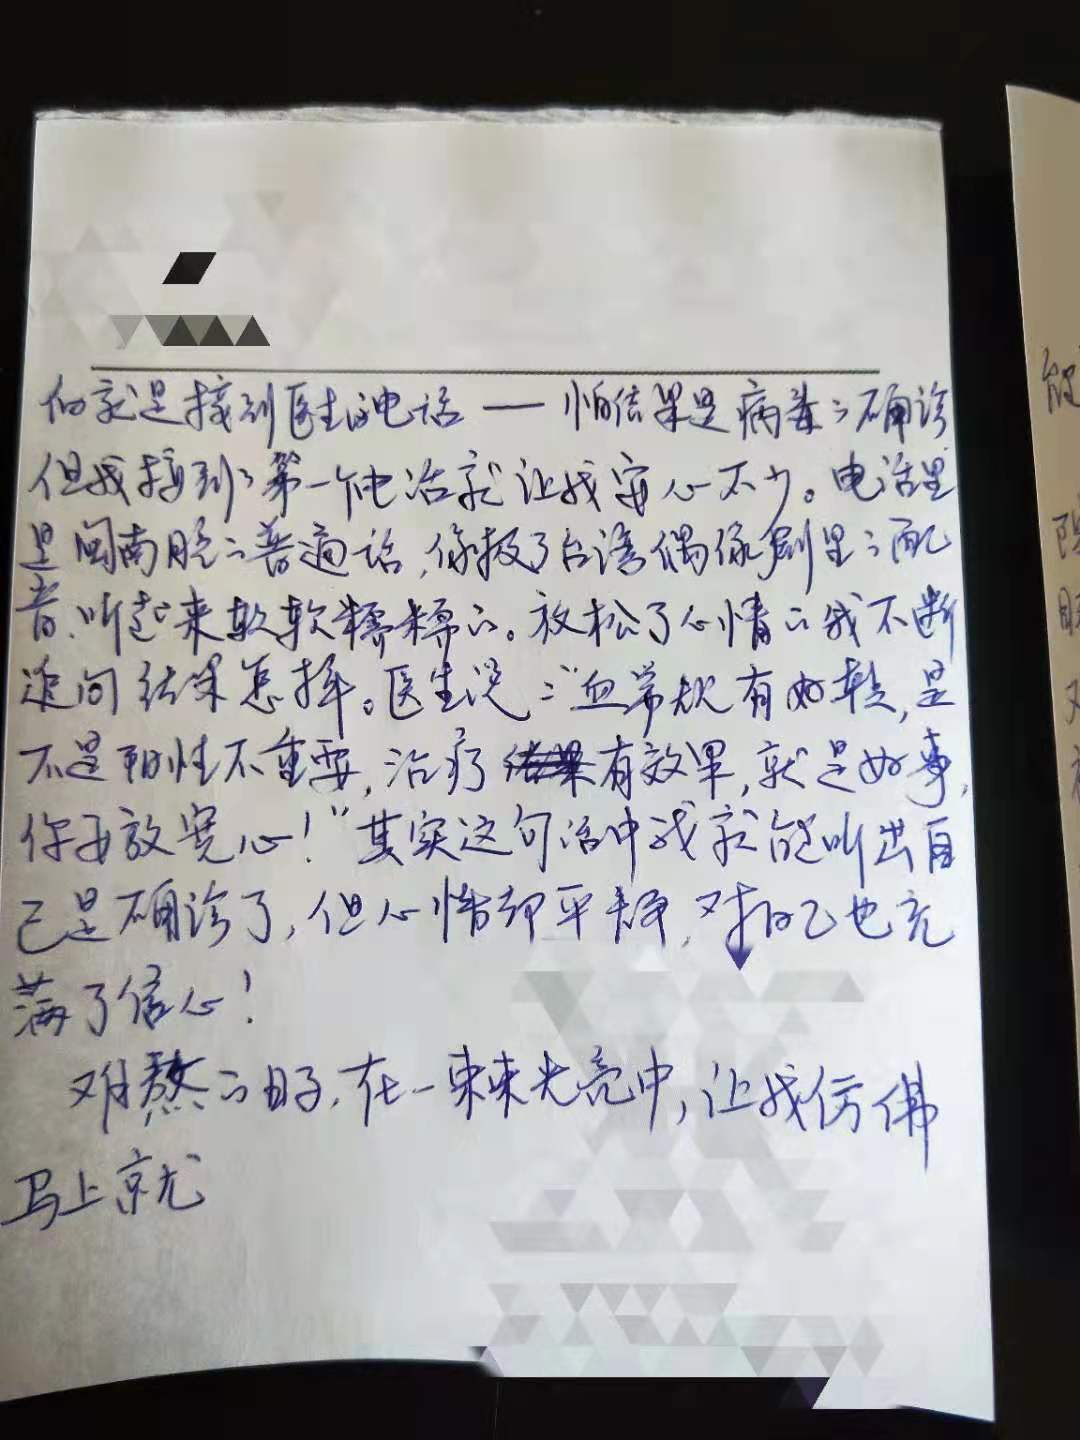 的就是接到医生的电话——怕结果是病毒的确诊
但我接到的第一个电话就让我安心不少。电话里
是闽南腔的普通话,像极了台湾偶像剧里的配
音,听起来软软糯糯的。放松了心情的我不断
追问结果怎样。医生说:“血常规有好转,是
不是阳性不重要,治疗有效果,就是好事,
你要放宽心!”其实这句话中我就能听出自
己是确诊了,但心情却平静,对自己也充
满了信心!
难熬的日子,在一束束光亮中,让我仿佛
马上就
能